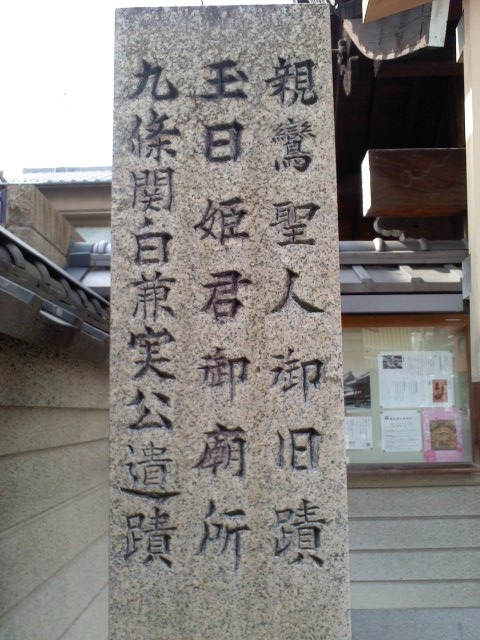 親鸞聖人御旧蹟
玉日姫君御廟所
九條関白兼実公遺蹟